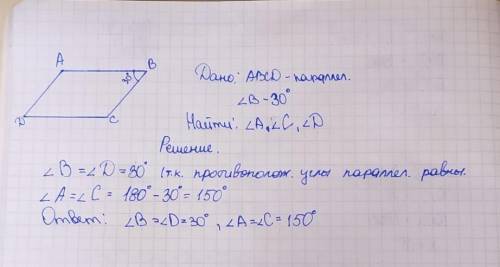 A
B
30°
D
C
Дано: ABCD - параллел.
∠B - 30°
Найти: ∠A, ∠C, ∠D
Решение.
∠B = ∠D = 30° (т.к. противополож. углы параллел. равны.
∠A = ∠C = 180° - 30° = 150°
Ответ: ∠B = ∠D = 30°, ∠A = ∠C = 150°